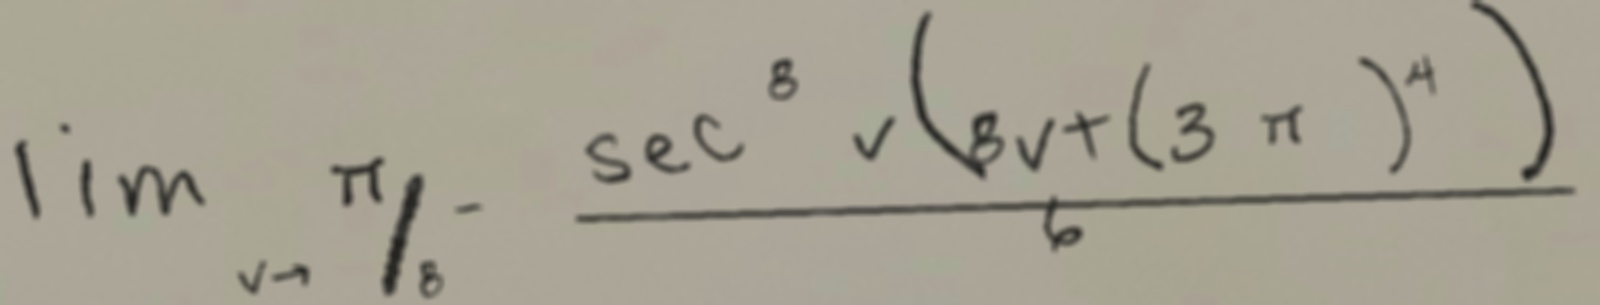 \lim_{v \to \pi/8^-} \frac{\sec^8 v \left(8v + (3\pi)^4\right)}{6}